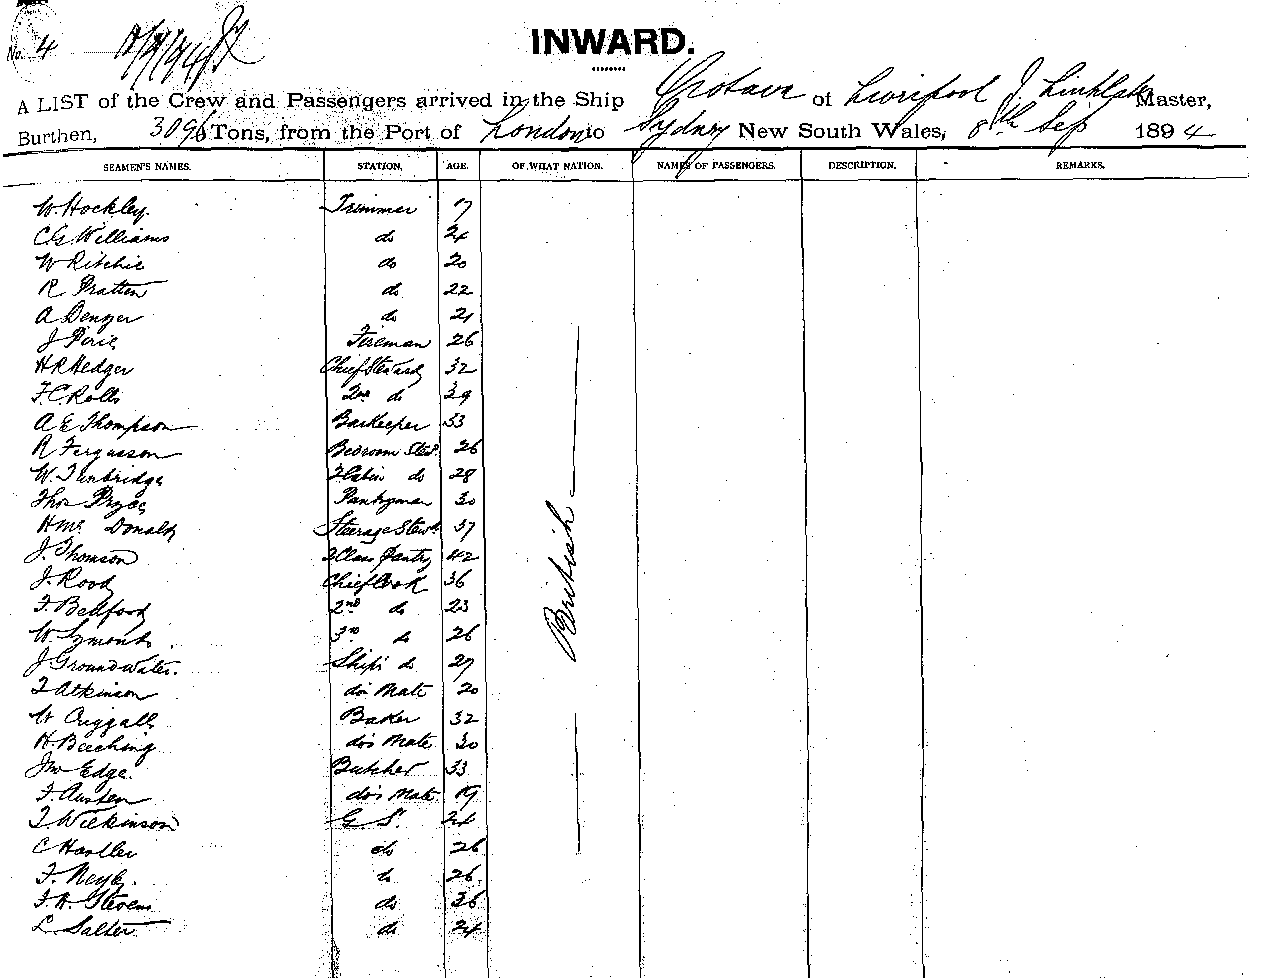 No. 4
INWARD.
A LIST of the Crew and Passengers arrived in the Ship Orotava of Liverpool J. Linklater Master,
Burthen, 3096 Tons, from the Port of London to Sydney New South Wales, 8th Sep 1894
SEAMEN'S NAMES. STATION. AGE. OF WHAT NATION. NAMES OF PASSENGERS. DESCRIPTION. REMARKS.
W. Hockley. Trimmer 17
C.G. Williams do 24
W Ritchie do 20
R Pratten do 22
A Denyer do 21
J Pirie Fireman 26
H R Hedger Chief Steward 32
F.C. Rolls 2nd do 39
A E Thompson Barkeeper 33
R Fergusson Bedroom Stewd 26
W. Tunbridge 2 Cabin do 28
Thos Pryce Pantryman 30
H Mc Donald Steerage Stewd 37
J. Thomson 2 Class Pantry 42
J. Rood Chief Cook 36
F. Bedford 2nd do 23
W. Symonds 3rd do 26
J Groundwater. Ships do 27
T Atkinson do's Mate 20
W Cuggall Baker 32
H. Beeching do's Mate 30
Jno Edge. Butcher 33
F. Austen do's Mate 19
T. Wilkinson G.S. 24
C do 26
F. do 26
F.H. Stevens do 36
L. Salter do 24
British